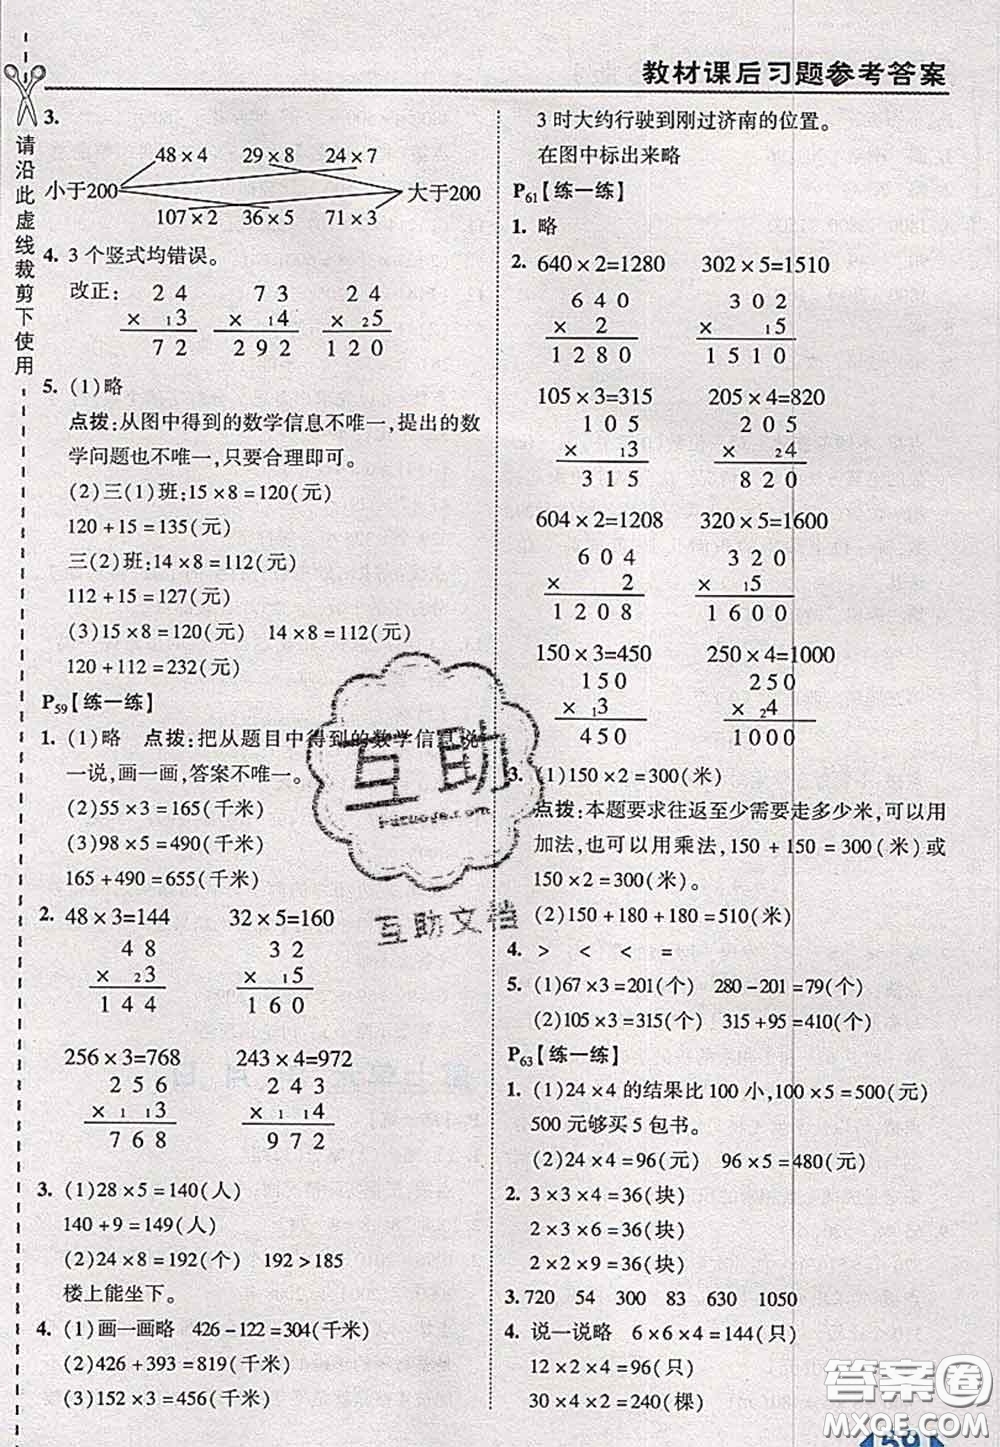 教材课后习题参考答案
请沿此虚线裁剪下使用
3.
48×4 29×8 24×7
小于200 大于200
107×2 36×5 71×3
4. 3个竖式均错误。
改正: 2 4 7 3 2 4
× ₁3 × ₁4 × ₂5
7 2 2 9 2 1 2 0
5. (1)略
点拨:从图中得到的数学信息不唯一,提出的数
学问题也不唯一,只要合理即可。
(2)三(1)班:15×8=120(元)
120+15=135(元)
三(2)班:14×8=112(元)
112+15=127(元)
(3)15×8=120(元) 14×8=112(元)
120+112=232(元)
P59【练一练】
1. (1)略 点拨:把从题目中得到的数学信息说
一说,画一画,答案不唯一。
(2)55×3=165(千米)
(3)98×5=490(千米)
165+490=655(千米)
2. 48×3=144 32×5=160
4 8 3 2
× ₂3 × ₁5
1 4 4 1 6 0
256×3=768 243×4=972
2 5 6 2 4 3
× ₁ ₁3 × ₁ ₁4
7 6 8 9 7 2
3. (1)28×5=140(人)
140+9=149(人)
(2)24×8=192(个) 192>185
楼上能坐下。
4. (1)画一画略 426-122=304(千米)
(2)426+393=819(千米)
(3)152×3=456(千米)
3时大约行驶到刚过济南的位置。
在图中标出来略
P61【练一练】
1. 略
2. 640×2=1280 302×5=1510
6 4 0 3 0 2
× 2 × ₁5
1 2 8 0 1 5 1 0
105×3=315 205×4=820
1 0 5 2 0 5
× ₁3 × ₂4
3 1 5 8 2 0
604×2=1208 320×5=1600
6 0 4 3 2 0
× 2 × ₁5
1 2 0 8 1 6 0 0
150×3=450 250×4=1000
1 5 0 2 5 0
× ₁3 × ₂4
4 5 0 1 0 0 0
3. (1)150×2=300(米)
点拨:本题要求往返至少需要走多少米,可以用
加法,也可以用乘法,150+150=300(米)或
150×2=300(米)。
(2)150+180+180=510(米)
4. > < < =
5. (1)67×3=201(个) 280-201=79(个)
(2)105×3=315(个) 315+95=410(个)
P63【练一练】
1. (1)24×4的结果比100小,100×5=500(元)
500元够买5包书。
(2)24×4=96(元) 96×5=480(元)
2. 3×3×4=36(块)
2×3×6=36(块)
2×2×9=36(块)
3. 720 54 300 83 630 1050
4. 说一说略 6×6×4=144(只)
12×2×4=96(只)
30×4×2=240(棵)
互助
互助文档
答案圈
MXQE.COM
59